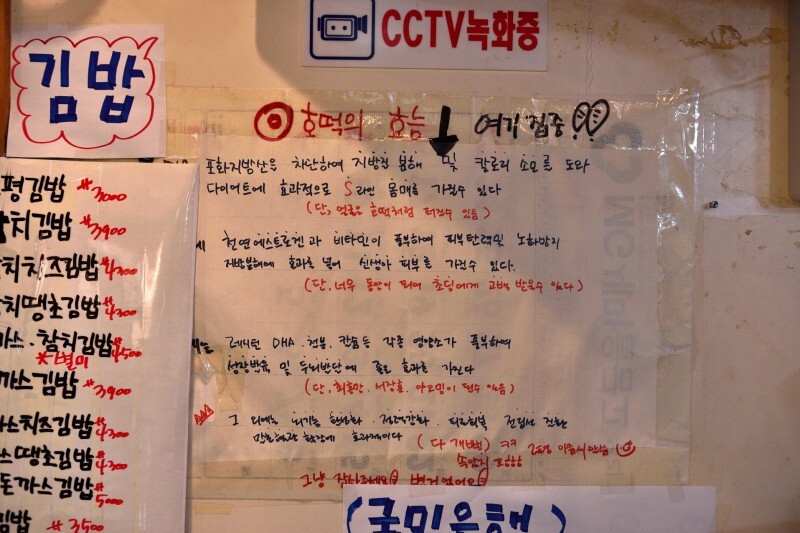 CCTV녹화중
김밥
평김밥 #3000
참치김밥 #3900
참치치즈김밥 #4300
참치땡초김밥 #4300
까스·참치김밥 #4500
*별미
까스김밥 #3900
까스치즈김밥 #4300
까스땡초김밥 #4300
돈까스김밥 #5000
김밥 #3500
호떡의 효능 여기 집중!!
포화지방산을 차단하여 지방질 분해 및 칼로리 소모를 도와
다이어트에 효과적으로 S라인 몸매를 가질수 있다
(단, 얼굴은 호떡처럼 퍼질수 있음)
천연에스트로겐과 비타민이 풍부하여 피부탄력및 노화방지
지방분해에 효과를 높여 신생아 피부를 가질수 있다.
(단, 너무 동안이 되어 초딩에게 고백 받을수 있다)
레시틴 DHA 칼슘등 각종 영양소가 풍부하여
성장발육 및 두뇌발달에 좋은 효과를 가진다
(단, 최홍만, 서장훈, 야오밍이 될수 있음)
그 외에는 혈액순환 정력강화 피로회복
만 효과적이다 (다 개뻥) ㅋㅋ
그냥 작사드세요 별거없어요
(국민은행)
MG새마을금고